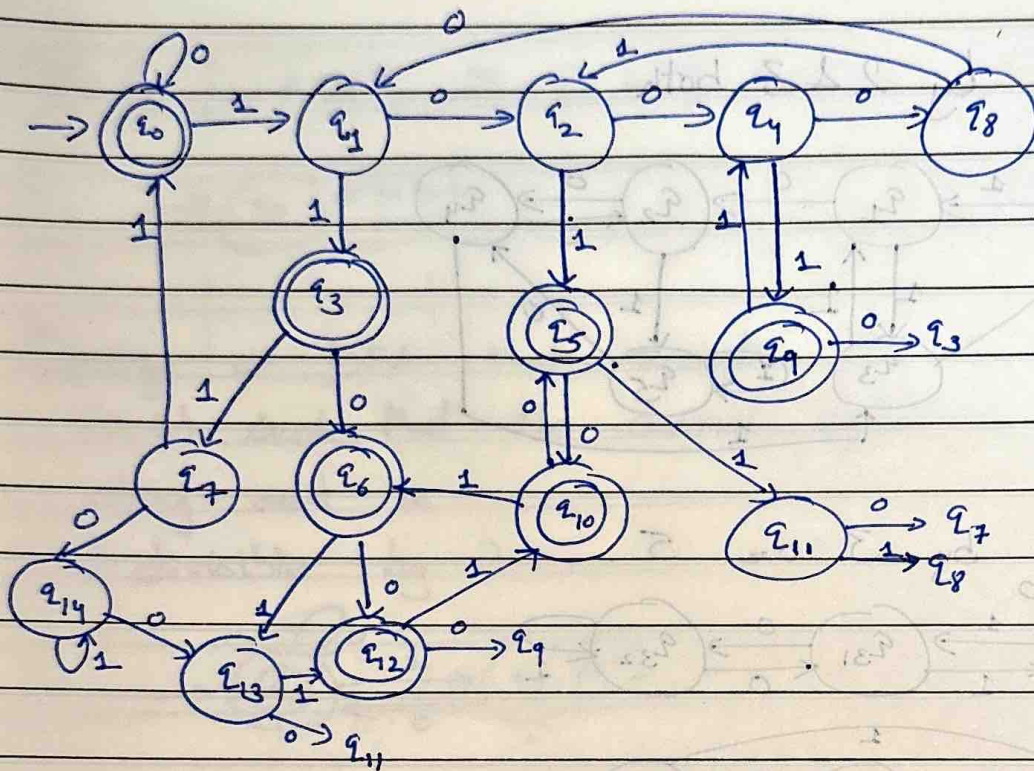 0
0 1
→ q0 1 q1 0 q2 0 q4 0 q8
1 1 1 1 1
q3 q5 q9 0 q3
1 0 0 0 1
q7 q6 1 q10 q11 0 q7
1 q8
0
q14 0 1 0 1
1 q13 1 q12 0 q9
0 q11